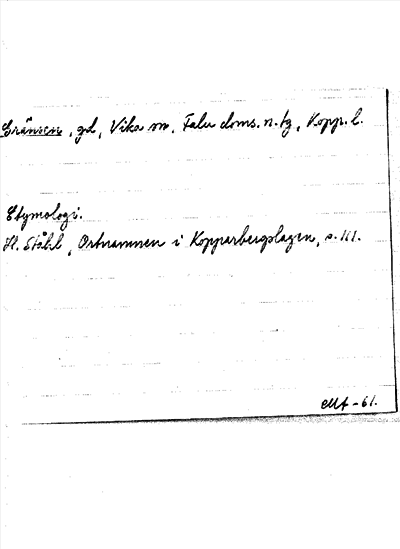 Gränsen, gd, Vika sn, Falu doms. n. tg, Kopp. l.
Etymologi.
H. Ståhl, Ortnamnen i Kopparbergslagen, s. 111.
-61.